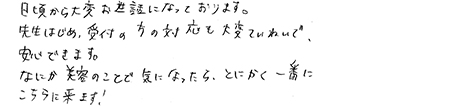 日頃から大変お世話になっております。
先生はじめ、受付の方の対応も大変ていねいで、
安心できます。
なにか美容のことで気になったら、とにかく一番に
こちらに来ます!